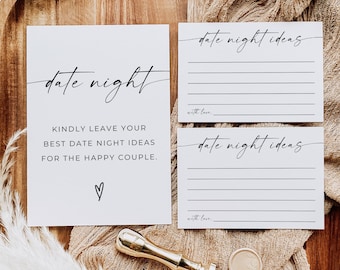 date night
KINDLY LEAVE YOUR
BEST DATE NIGHT IDEAS
FOR THE HAPPY COUPLE.
date night ideas
with love
date night ideas
with love